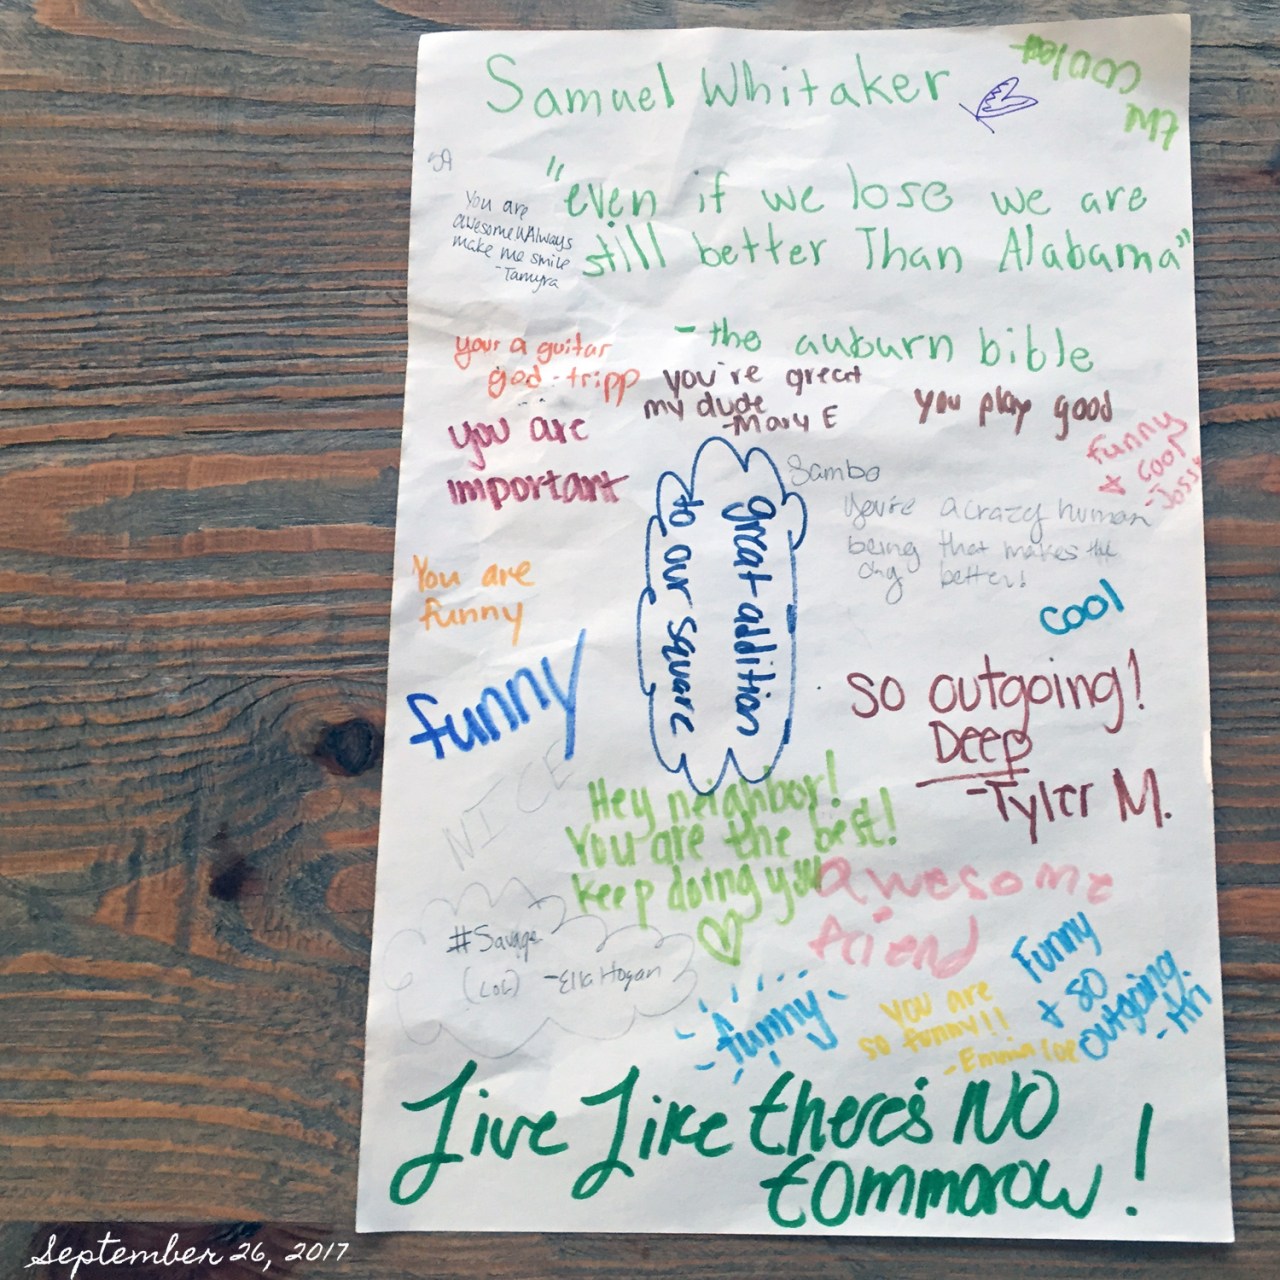 Samuel Whitaker
coolest
M7
SA
"even if we lose we are
still better Than Alabama"
- the auburn bible
You are
awesome!! Always
make me smile
-Tamyra
your a guitar
god - tripp
you're great
my dude
-Mary E
you play good
you are
important
funny
+ cool
Sambo
You're a crazy human
being that makes the
day better!
great addition
to our square
You are
funny
cool
funny
so outgoing!
Deep
-Tyler M.
NICE
Hey neighbor!
You are the best!
keep doing you
awesome
friend
#Savage
(LOL) -Ella Hogan
funny
you are
so funny!!
Funny
+ so
outgoing.
Live Like there's NO
tommorow!
September 26, 2017